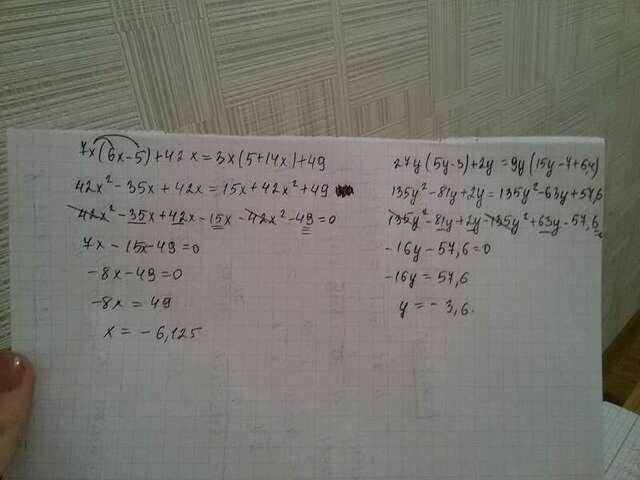 7x(6x-5)+42x=3x(5+14x)+49
42x²-35x+42x=15x+42x²+49
42x²-35x+42x-15x-42x²-49=0
7x-15x-49=0
-8x-49=0
-8x=49
x=-6,125
27y(5y-3)+2y=9y(15y-7+6,4)
135y²-81y+2y=135y²-63y+57,6
135y²-81y+2y-135y²+63y-57,6=0
-16y-57,6=0
-16y=57,6
y=-3,6.